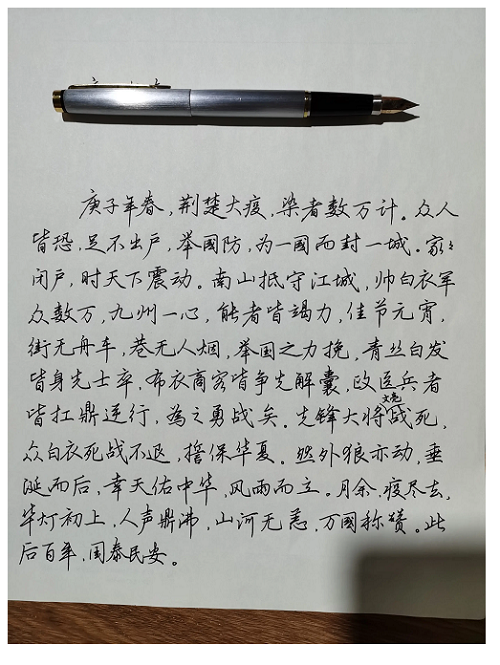 庚子年春,荆楚大疫,染者数万计。众人
皆恐,足不出户,举國防,为一國而封一城。家々
闭户,时天下震动。南山抵守江城,帅白衣军
众数万,九州一心,能者皆竭力,佳节元宵,
街无舟车,巷无人烟,举国之力挽,青丝白发
皆身先士卒,布衣商客皆争先解囊,政医兵者
皆扛鼎逆行,為之勇战矣。先锋大将文亮战死,
众白衣死战不退,擔保华夏。然外狼亦动,垂
涎而后,幸天佑中华,风雨而立。月余,疫尽去,
华灯初上,人声鼎沸,山河无恙,万國称赞。此
后百年,国泰民安。